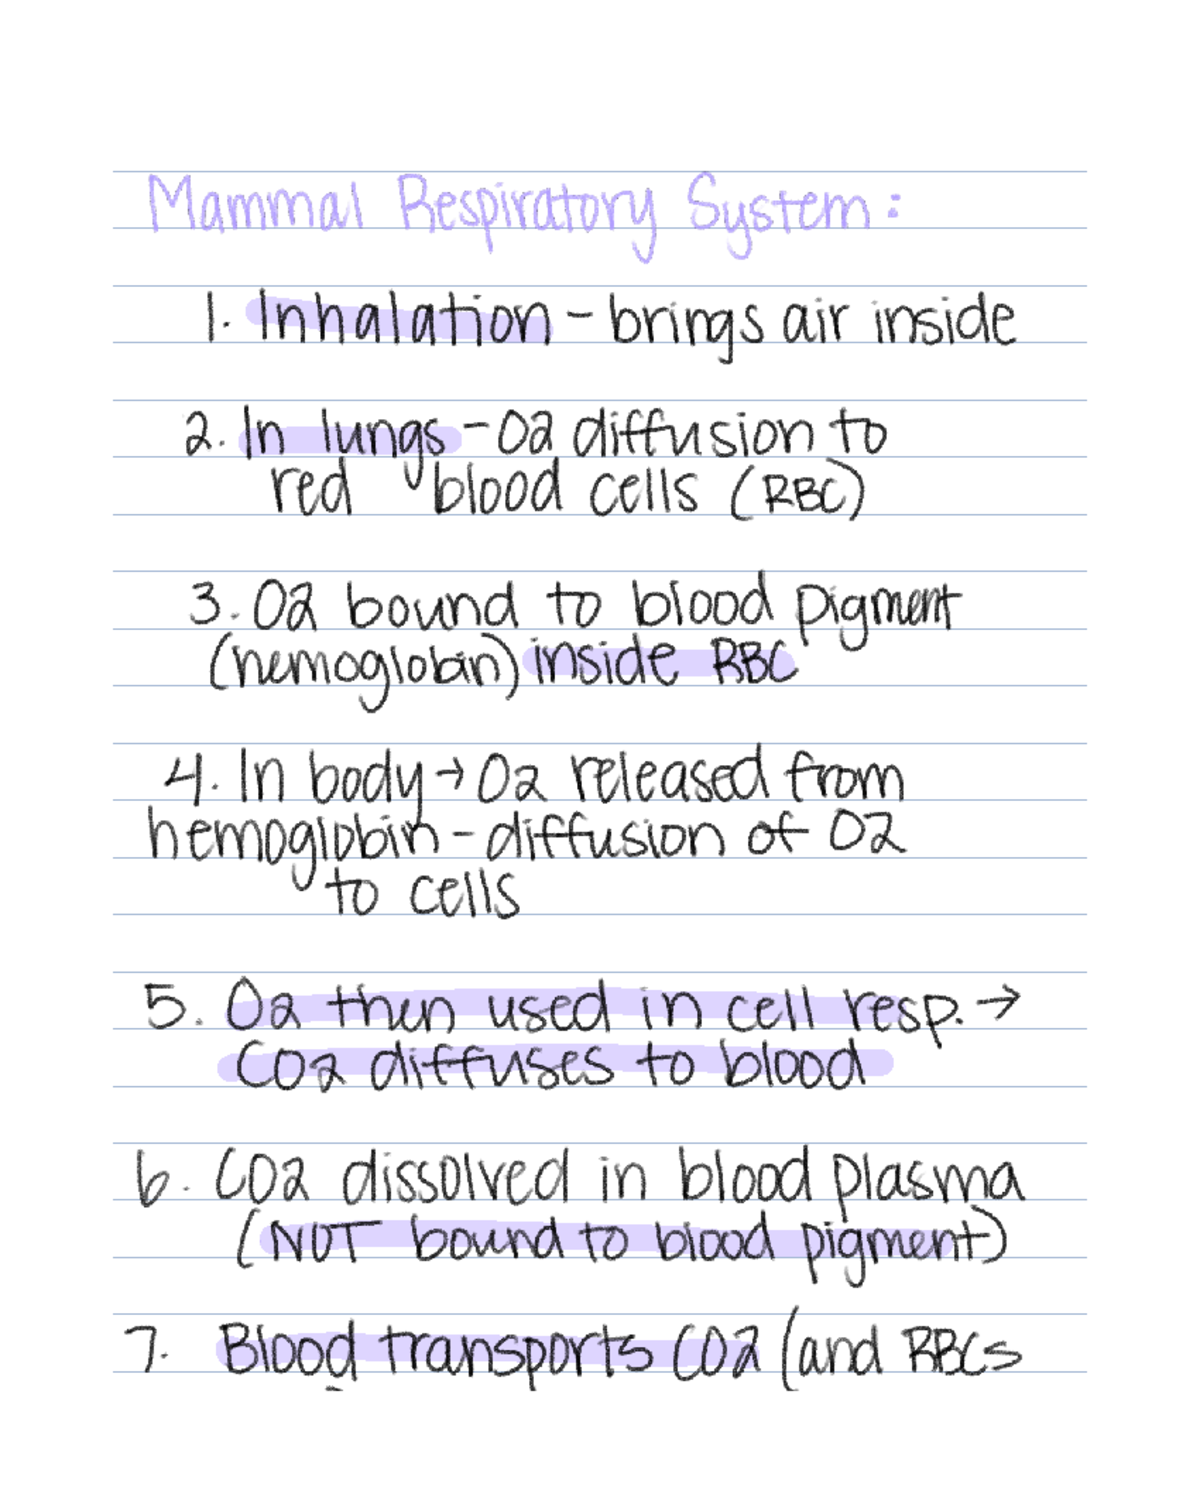 Mammal Respiratory System:
1. Inhalation - brings air inside
2. In lungs - O2 diffusion to
red blood cells (RBC)
3. O2 bound to blood pigment
(hemoglobin) inside RBC
4. In body → O2 released from
hemoglobin - diffusion of O2
to cells
5. O2 then used in cell resp. →
CO2 diffuses to blood
6. CO2 dissolved in blood plasma
(NOT bound to blood pigment)
7. Blood transports CO2 (and RBCs